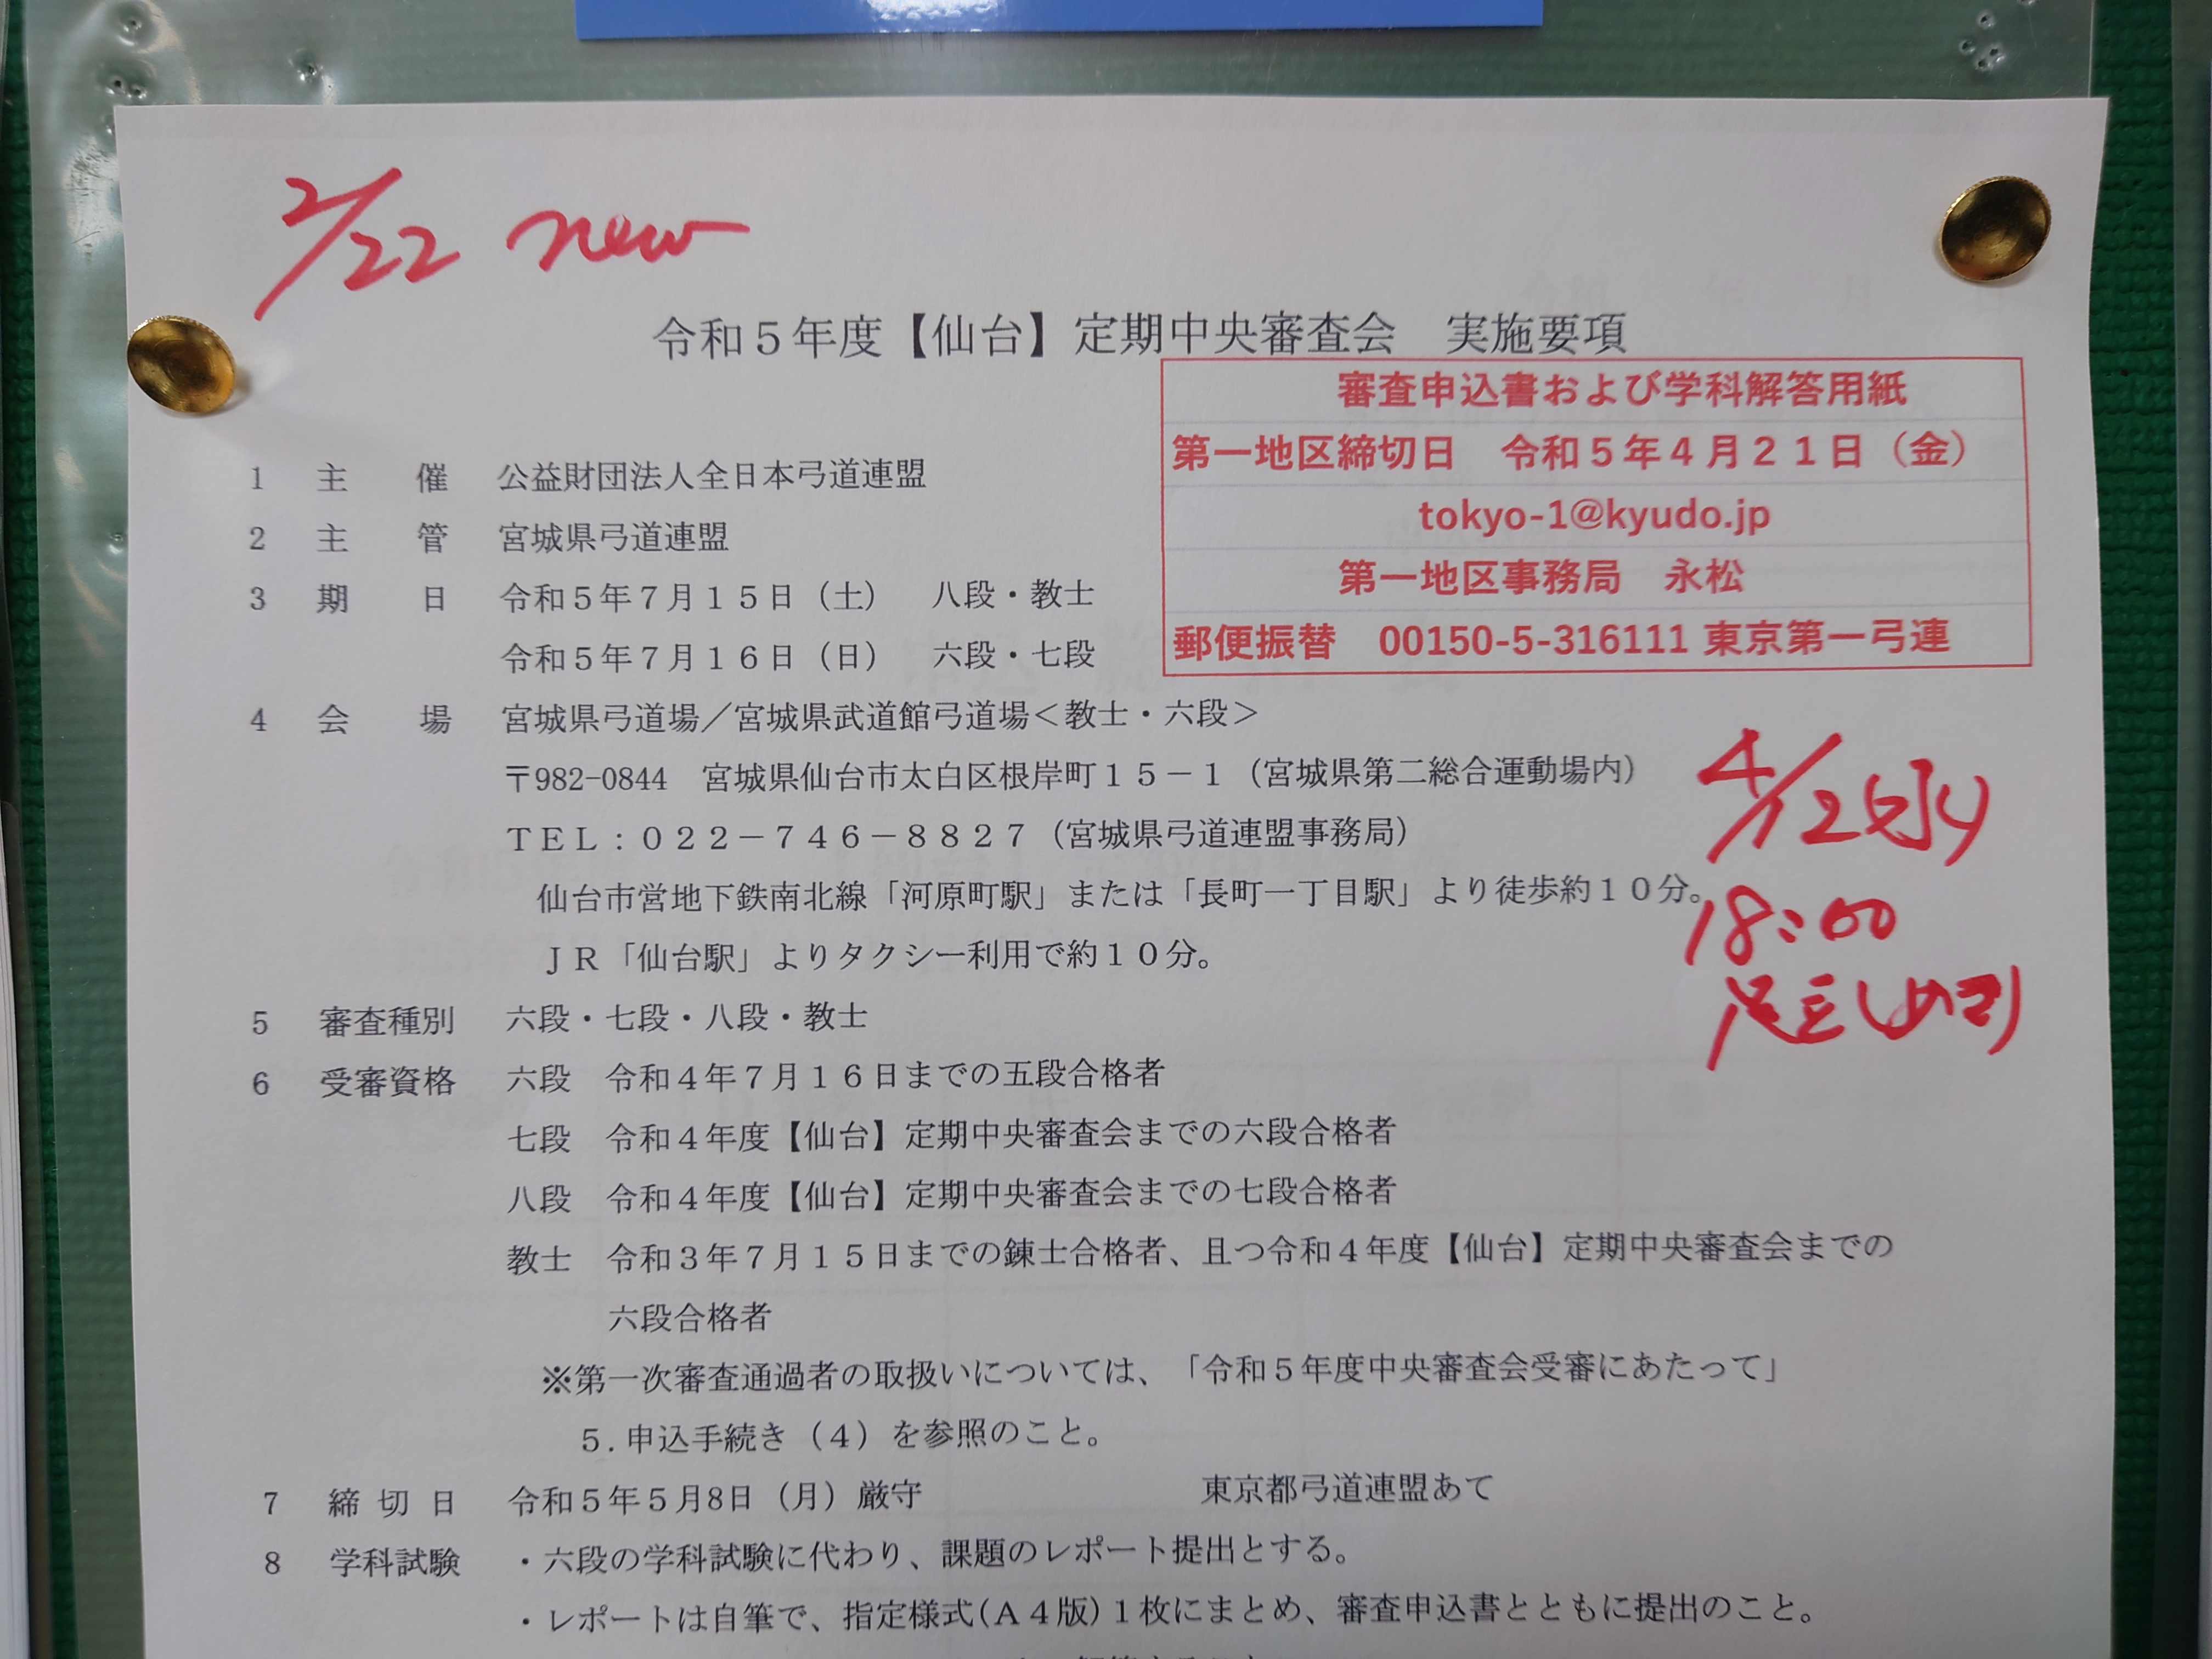 2/22 new
令和５年度【仙台】定期中央審査会　実施要項
審査申込書および学科解答用紙
第一地区締切日　令和５年４月２１日（金）
tokyo-1@kyudo.jp
第一地区事務局　永松
郵便振替　00150-5-316111 東京第一弓連
1　主　催　公益財団法人全日本弓道連盟
2　主　管　宮城県弓道連盟
3　期　日　令和５年７月１５日（土）　八段・教士
令和５年７月１６日（日）　六段・七段
4　会　場　宮城県弓道場／宮城県武道館弓道場＜教士・六段＞
〒982-0844　宮城県仙台市太白区根岸町１５－１（宮城県第二総合運動場内）
ＴＥＬ：０２２－７４６－８８２７（宮城県弓道連盟事務局）
仙台市営地下鉄南北線「河原町駅」または「長町一丁目駅」より徒歩約１０分。
ＪＲ「仙台駅」よりタクシー利用で約１０分。
4/12(水)
18:00
足立〆切
5　審査種別　六段・七段・八段・教士
6　受審資格　六段　令和４年７月１６日までの五段合格者
七段　令和４年度【仙台】定期中央審査会までの六段合格者
八段　令和４年度【仙台】定期中央審査会までの七段合格者
教士　令和３年７月１５日までの錬士合格者、且つ令和４年度【仙台】定期中央審査会までの
六段合格者
※第一次審査通過者の取扱いについては、「令和５年度中央審査会受審にあたって」
５．申込手続き（４）を参照のこと。
7　締切日　令和５年５月8日（月）厳守　東京都弓道連盟あて
8　学科試験　・六段の学科試験に代わり、課題のレポート提出とする。
・レポートは自筆で、指定様式(Ａ４版)１枚にまとめ、審査申込書とともに提出のこと。